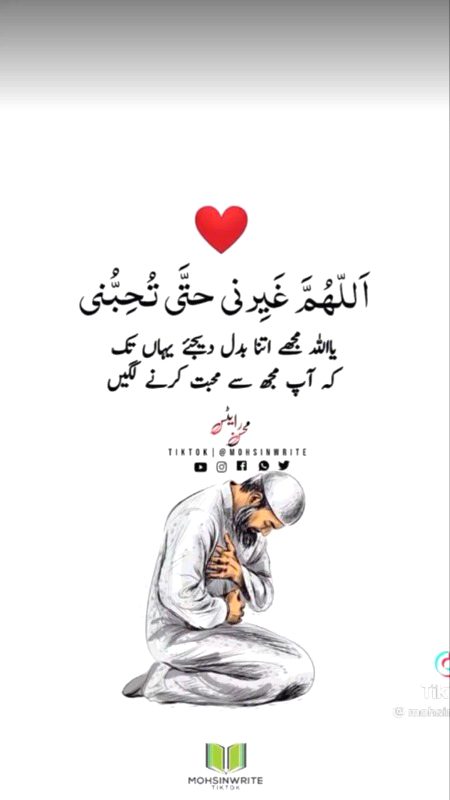 اَللّٰهُمَّ غَيِرنی حتَّی تُحِبُّنی
یااللہ مجھے اتنا بدل دیجئے یہاں تک
کہ آپ مجھ سے محبت کرنے لگیں
محسن رائٹس
TIKTOK|@MOHSINWRITE
TikT
@ mohsin
MOHSINWRITE
TIKTOK